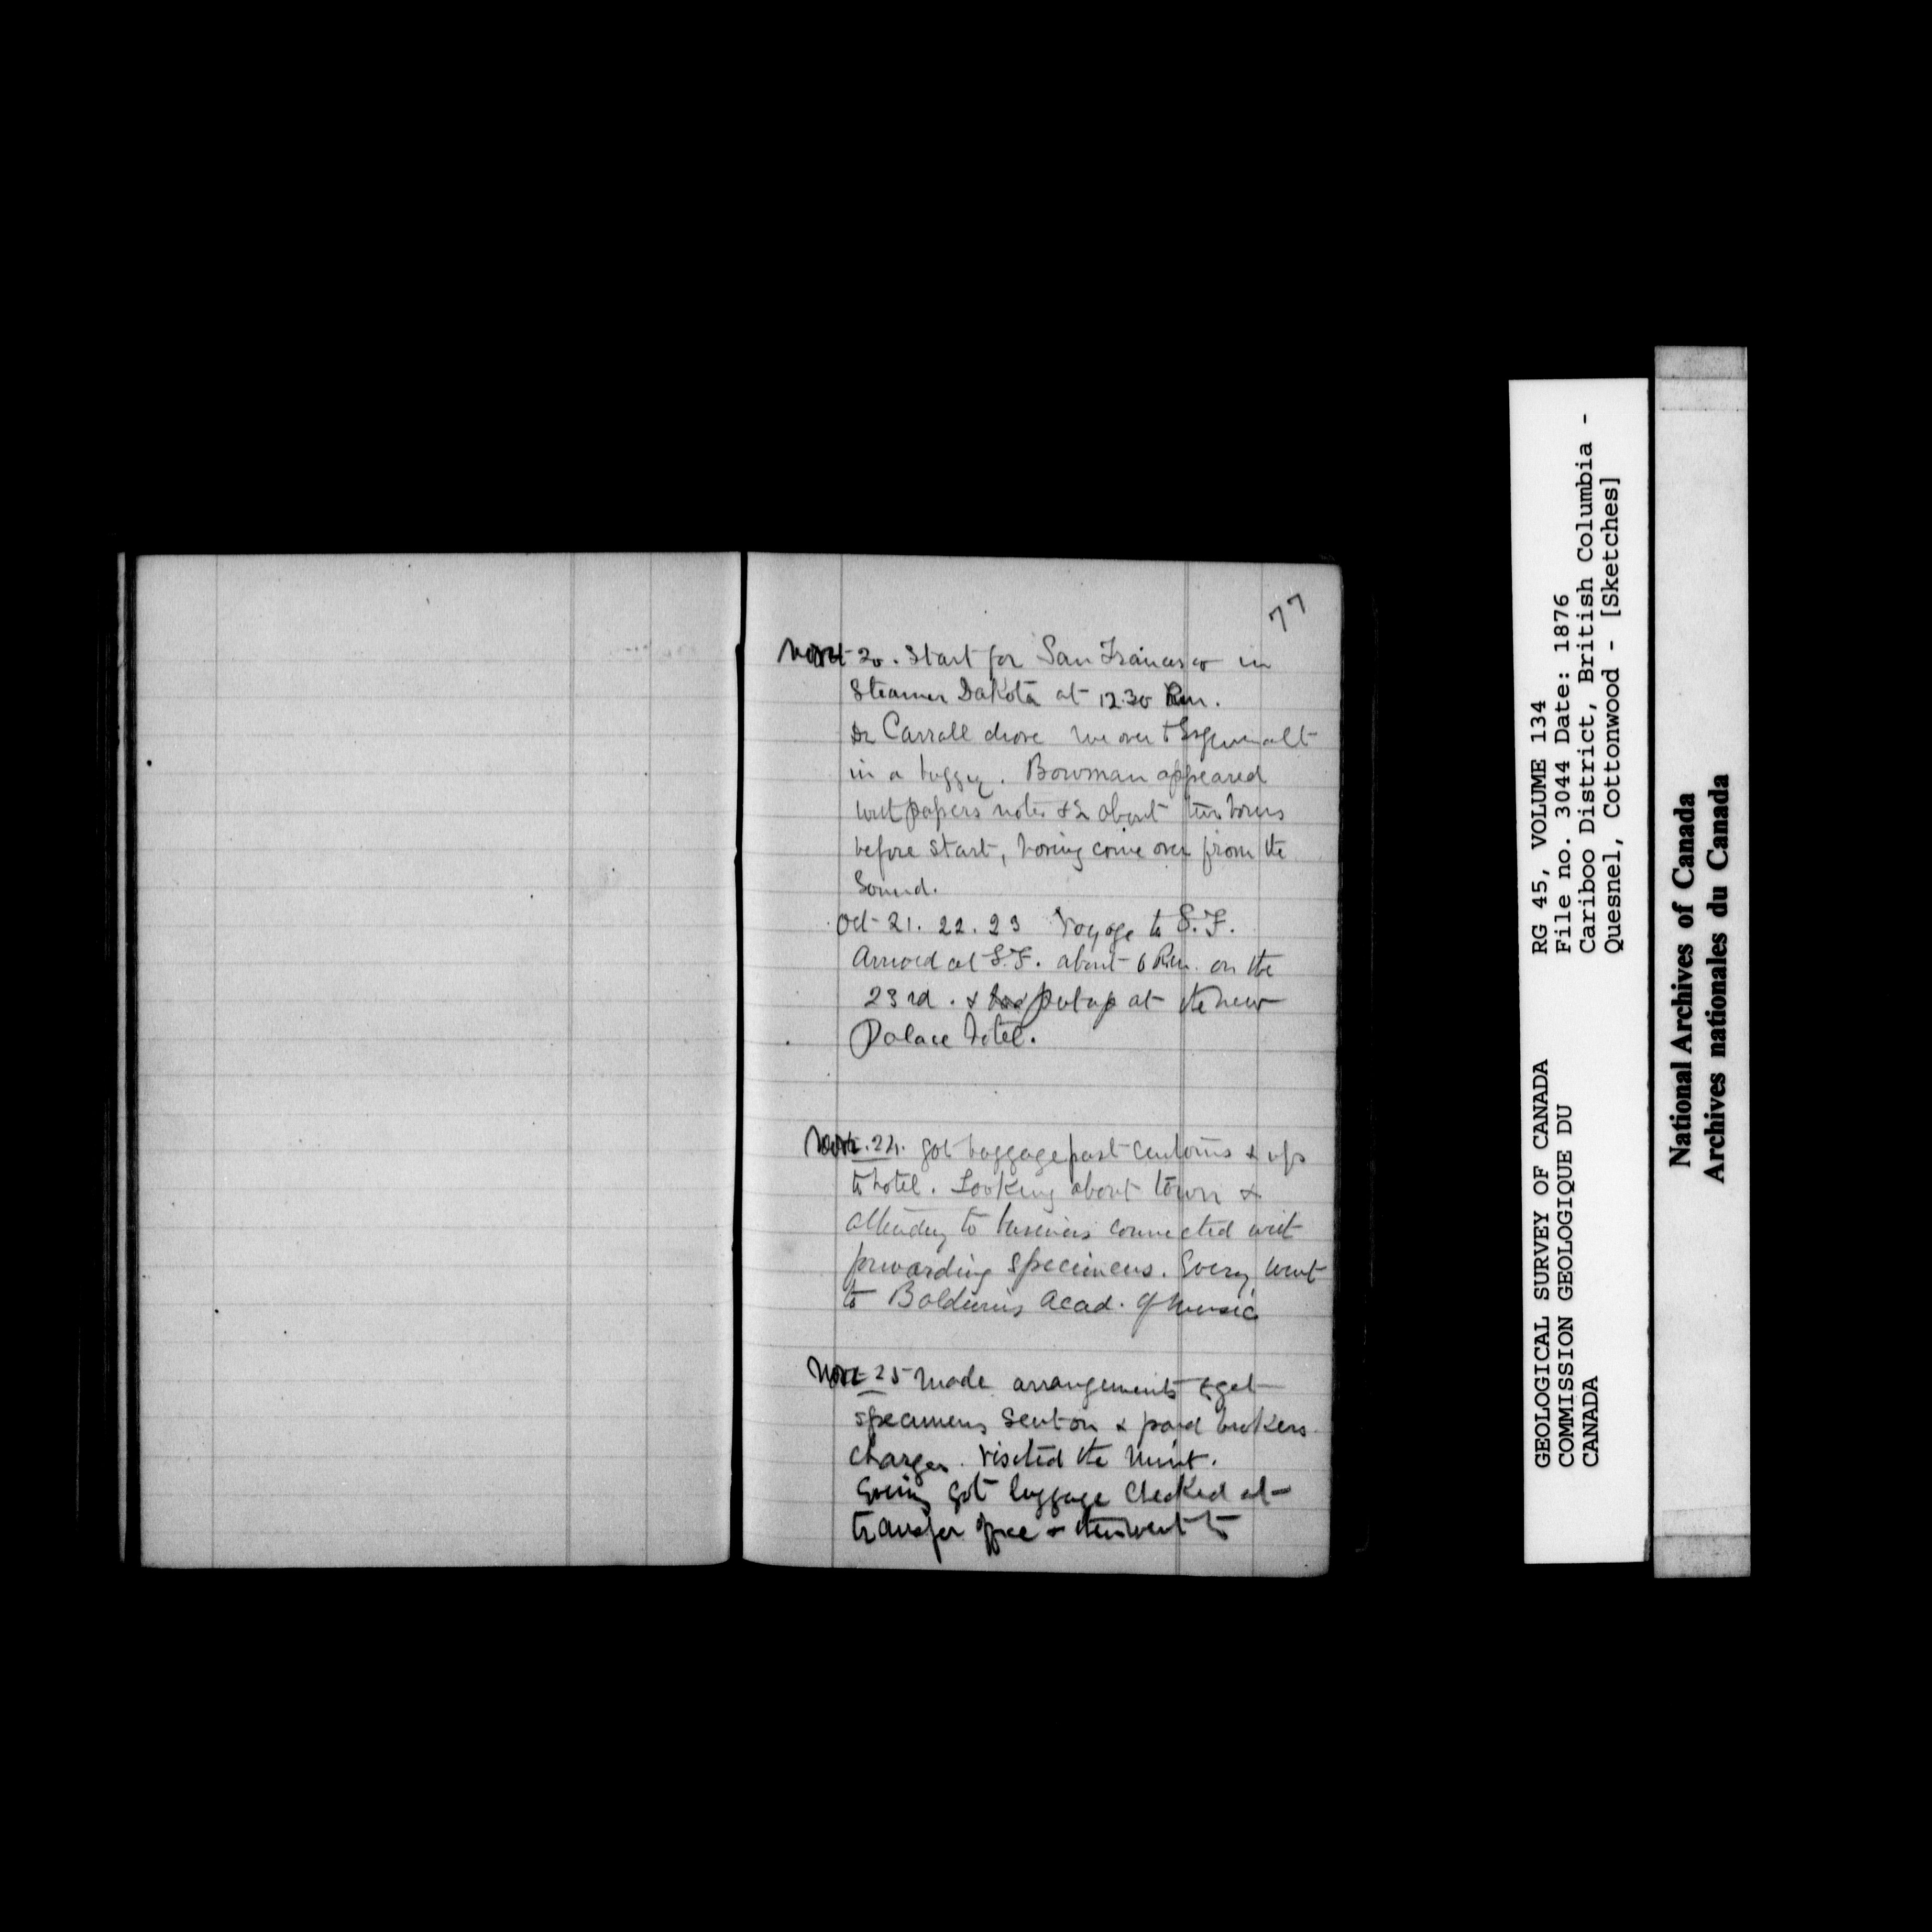 77
Nov 20. Start for San Francisco in
Steamer Dakota at 12.30 P.m.
Dr Carrall drove me over to Esquimalt
in a buggy. Bowman appeared
with papers notes &c about two hours
before start, having come over from the
Sound.
Oct 21. 22. 23 Voyage to S.F.
Arrived at S.F. about 6 P.m. on the
23rd. & put up at the new
Palace Hotel.
Nov. 24. Got baggage past customs & up
to hotel. Looking about town &
attending to business connected with
forwarding specimens. Eveng went
to Baldwins Acad. of Music
Nov 25 Made arrangements to get
specimens sent on & paid brokers
charges. Visited the Mint.
Evening got luggage checked at
transfer office & then went to
GEOLOGICAL SURVEY OF CANADA
COMMISSION GEOLOGIQUE DU
CANADA
RG 45, VOLUME 134
File no. 3044 Date: 1876
Cariboo District, British Columbia -
Quesnel, Cottonwood - [Sketches]
National Archives of Canada
Archives nationales du Canada